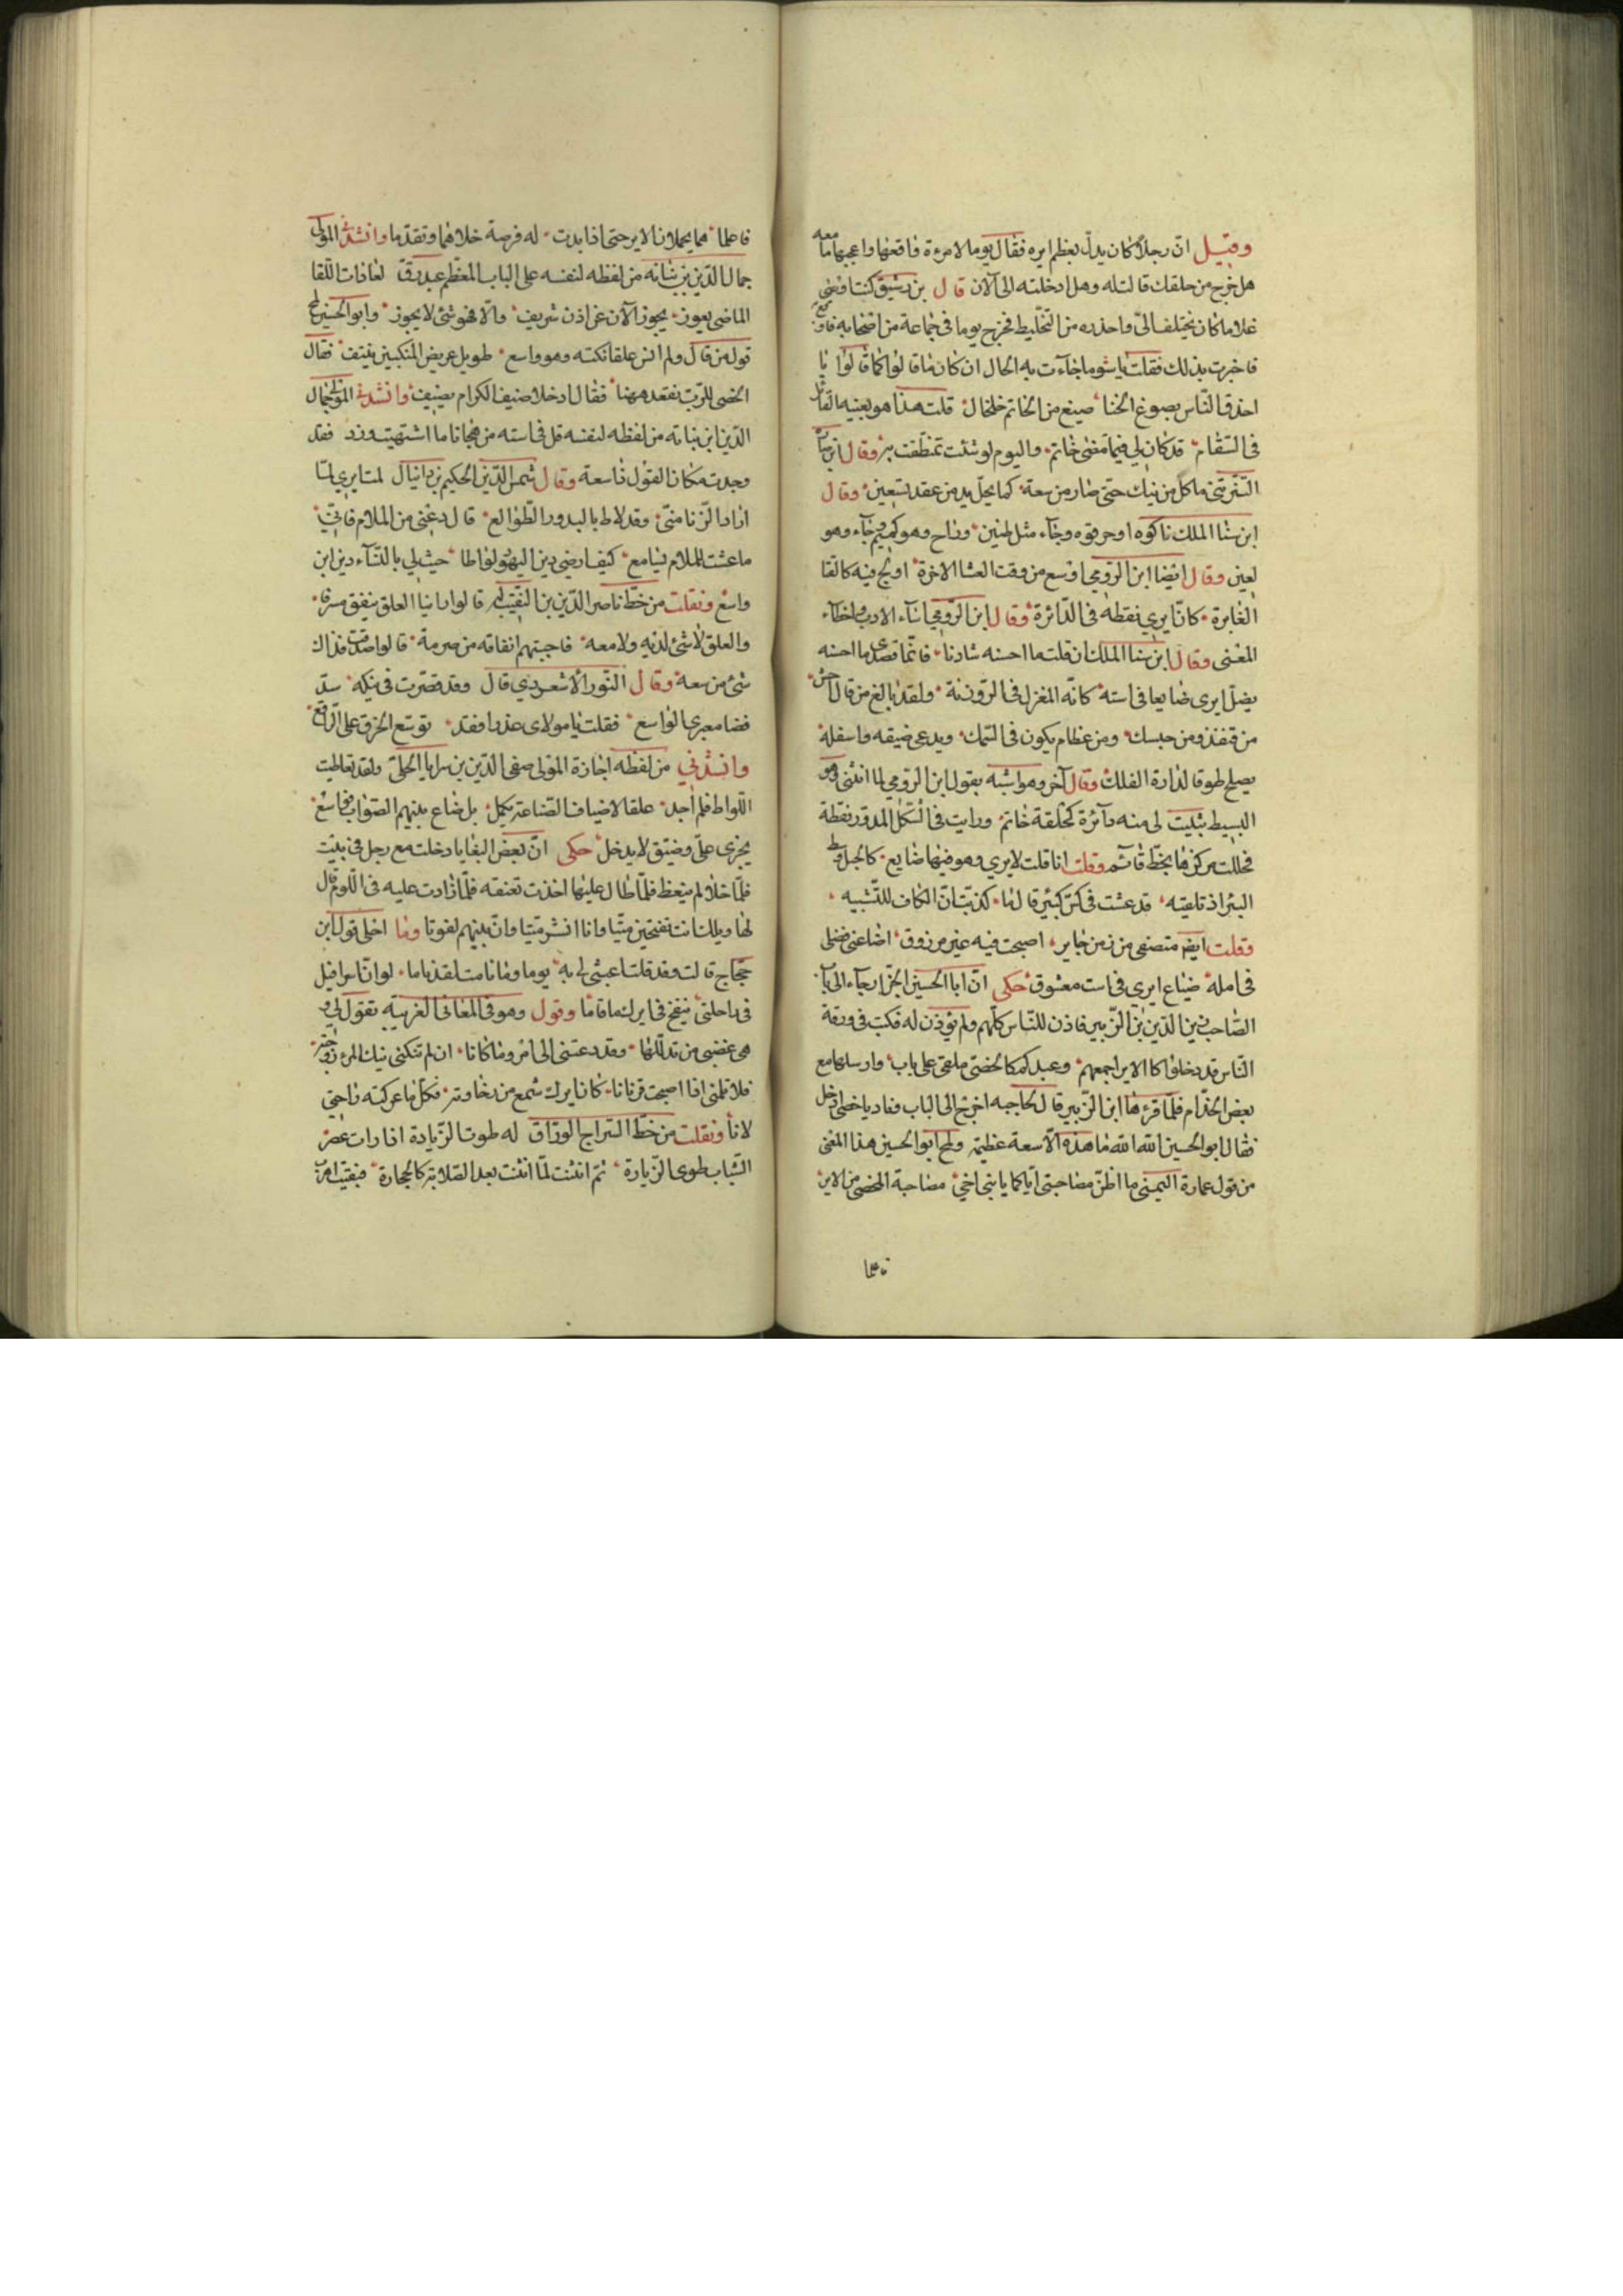 وقيل انّ رجلاً كان يدلّ بعظم ايره فقال يوما لامرءة فاقعها واعجبها ما معه
هل خرج من حلقك قالت له وهل ادخلته الى الآن قال بن رشيق كنت
غلاما كان يختلف الىّ واحذره من التخليط فخرج يوما فى جماعة من اصحابه
فاخبرت بذلك فقلت يا سُو ما جآءت به الحال ان كان ما قالوا كما قالوا يا
احذق النّاس بصوغ الخنا صيغ من الخاتم خلخال قلت هذا هو بعينه
فى السّقام قد كان لى فيما مضى خاتم واليوم لو شئت تمنطقت به وقال ابن
ما كلّ من نيك حتى صار من سعة كما يحلّ يد من عقد تسعين وقال
ابن سنا الملك وجآء مثل وراح وهو كميم وجآء وهو
لعين وقال ايضا ابن الرّومى اوسع من وقت العشا الاخرة اولج فيه
الغابرة كانّ ايرى نقطة فى الدّائرة وقال ابن الرّومى اسآء الادب واخطآء
المعنى وقال ابن سنا الملك ان قلت ما احسنه شادنا فانّما قصدى ما احسنه
يضلّ ايرى ضايعا فى استه كانّه المغزل فى الرّوزنة ولقد بالغ من قال
من قنفذ ومن حبسك ومن عظام يكون فى السّمك ويدعى ضيقه واسفله
يصلح طوقا لدارة الفلك وقال آخر وهو اشبه بقول ابن الرّومى لما انثنى
البسيط بثبت لى منه دآئرة كحلقة خاتم ورايت فى الشّكل المدوّر نقطة
فحللت مركزها بخطّ قآئم وقلت انا قلت لايرى وهو فيها ضايع كالحبل وسط
البئر اذ تلقيه قد عشت فى كسّ كبير قال لها كذبت انّ الكاف للتّشبيه
وقلت ايضا منصفى من زمن جاير اصبحت فيه غير مرزوق اضاعنى فضلى
فى امله ضياع ايرى فى است معشوق حكى انّ ابا الحسين الجزّار جآء الى باب
الصّاحب زين الدّين بن الزّبير فاذن للنّاس كلّهم ولم يؤذن له فكتب فى ورقة
النّاس قد دخلوا كالاير اجمعهم وعبدكم كالخصى ملقى على باب وارسلها مع
بعض الخدّام فلمّا قرءها ابن الزّبير قال لحاجبه اخرج الى الباب وناد يا خصى ادخل
فقال ابو الحسين الله الله ما هذه الّا سعة عظيمة ولمح ابو الحسين هذا المعنى
من قول عمارة اليمنى ما اظنّ مصاحبتى ايّاكما يا بنى اخى مصاحبة الخصى من الاير
فاعلما
فاعلما هما يحملان الاير حتى اذا بدت له فرصة خلاهما وتقدّما وانشدنى المولى
جمال الدّين بن نباته من لفظه لنفسه على الباب المعظّم عبد رقّ لعاذات اللّقا
الماضى يعوز يجوز الآن عن اذن شريف والّا فهو شئ لا يجوز وابو الحسين لمح
قول من قال ولم انس علقا نكته وهو واسع طويل عريض المنكبين فقال
الخصى للزّب نقعد ههنا فقال ادخلا ضيف الكرام يضيف وانشدنى المولى جمال
الدّين ابن نباته من لفظه لنفسه قل فى استه من هجانا ما اشتهيت وزد فقد
وجدت مكان القول ذا سعة وقال شمس الدّين الحكيم بن دانيال لمت ايرى لمّا
اراد الزّنا منّى وقد لاط بالبدور الطّوالع قال دعنى من الملام فانّى
ما عشت للملام بسامع كيف ارضى دين اليهود لواطا حيث لى بالنّسآء دين ابن
واسع ونقلت من خطّ ناصر الدّين بن النّقيب له قالوا راينا العلق ينفق مسرفا
والعلق لا شئ لديه ولا معه فاجبتهم انفاقه من صرمة قالوا صدقت فذاك
شئ من سعة وقال النّور الاسعردى قال وقد قصّرت فى نيكه سدّ
فضا معبرى الواسع فقلت يا مولاى عذرا فقد توسّع الخرق على الرّاقع
وانشدنى من لفظه اجازة المولى صفى الدّين بن سرايا الحلّى ولقد تعاطيت
اللّواط فلم اجد علقا لاضياف الصّناعة يكمل بل ضاع بينهم الصّواب فواسع
يخرى علىّ وضيّق لا يدخل حكى انّ بعض البغايا دخلت مع رجل فى بيت
فلمّا خلا لم ينعظ فلمّا طال عليها اخذت تعنفه فلمّا زادت عليه فى اللّوم قال
لها ويلك انت تفتحين ميتا وانا انشر ميتا وانّ بينهم لفوتا وما احلى قول ابن
حجّاج قالت وقد قلت اعبثى لى به يوما وما نامت لقد ناما لو انّ اسرافيل
فى راحتى ينفخ فى ايرك ما قاما وقول وهو فى المعانى الغريبة تقول لى و
هى غضبى من تدلّلها وقد دعتنى الى امر وما كانا ان لم تنكنى نيك المرء زوجته
فلا تلمنى اذا اصبحت قرنانا كان ايرك شمع من رخاوته فكلّ ما عركته راحتى
لانا ونقلت من خطّ السّراج الورّاق له طوت الزّيادة اذ رات عصر
الشّباب طوى الزّيارة ثمّ انثنت لمّا انثنت بعد الصّلابة كالحجارة فبقيت اهرب